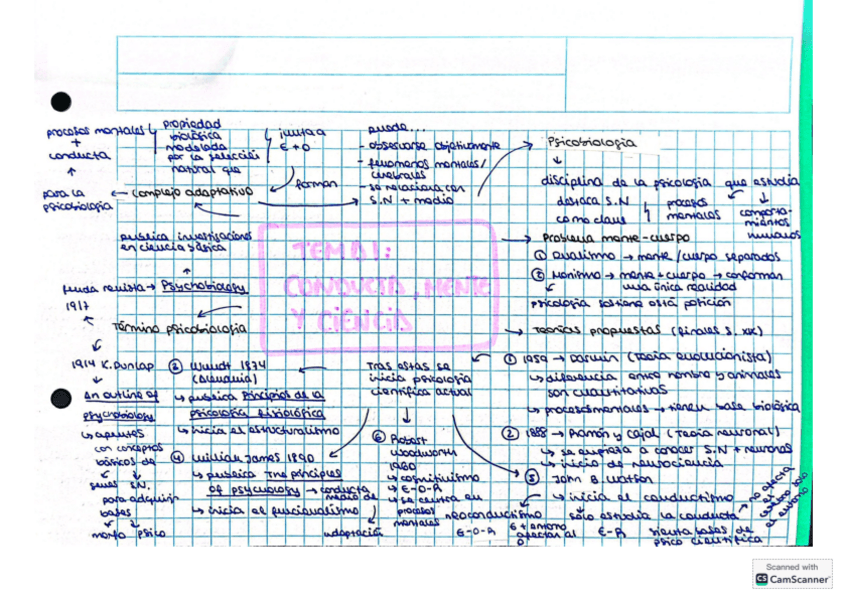 procesos mentales
+
conducta
para la
psicobiología
propiedad
biológica
modelada
por la selección
natural que
junta a
E + O
forman
complejo adaptativo
puede...
- observarse objetivamente
- fenómenos mentales/
cerebrales
- se relaciona con
S.N + medio
Psicobiología
disciplina de la psicología que estudia
destaca S.N
como clave
procesos
mentales
comporta-
mientos
humanos
Problema mente-cuerpo
① Dualismo → mente/cuerpo separados
② Monismo → mente + cuerpo → conforman
una única realidad
psicología sostiene esta posición
Teorías propuestas (finales S. XIX)
① 1959 → Darwin (Teoría evolucionista)
↳ diferencia entre hombre y animales
son cuantitativas
↳ procesos mentales → tienen base biológica
② 1888 → Ramón y Cajal (Teoría neuronal)
↳ se empieza a conocer S.N + neuronas
↳ inicio de neurociencia
TEMA 1:
CONDUCTA, MENTE
Y CIENCIA
publica investigaciones
en ciencia básica
funda revista → Psychobiology
1917
Término psicobiología
1914 K. Dunlap
An outline of
psychobiology
↳ apuntes
con conceptos
básicos de
S.N.
para adquirir
bases
morfo psico
Tras estas se
inicia psicología
científica actual
③ Wundt 1874
(Alemania)
↳ publica Principios de la
psicología fisiológica
↳ inicia el estructuralismo
④ William James 1890
↳ publica The principles
of psychology → conducta
medio de
adaptación
↳ inicia el funcionalismo
⑤ John B. Watson
↳ inicia el conductismo
sólo estudia la conducta
E-R
no afecta
el cerebro solo
el entorno
sienta bases de
psico científica
⑥ Robert
Woodworth
1960
↳ cognitivismo
↳ E-O-R
↳ se centra en
procesos
mentales
neoconductismo
E-O-R
E + entorno
afectan al
O
Scanned with
CS CamScanner